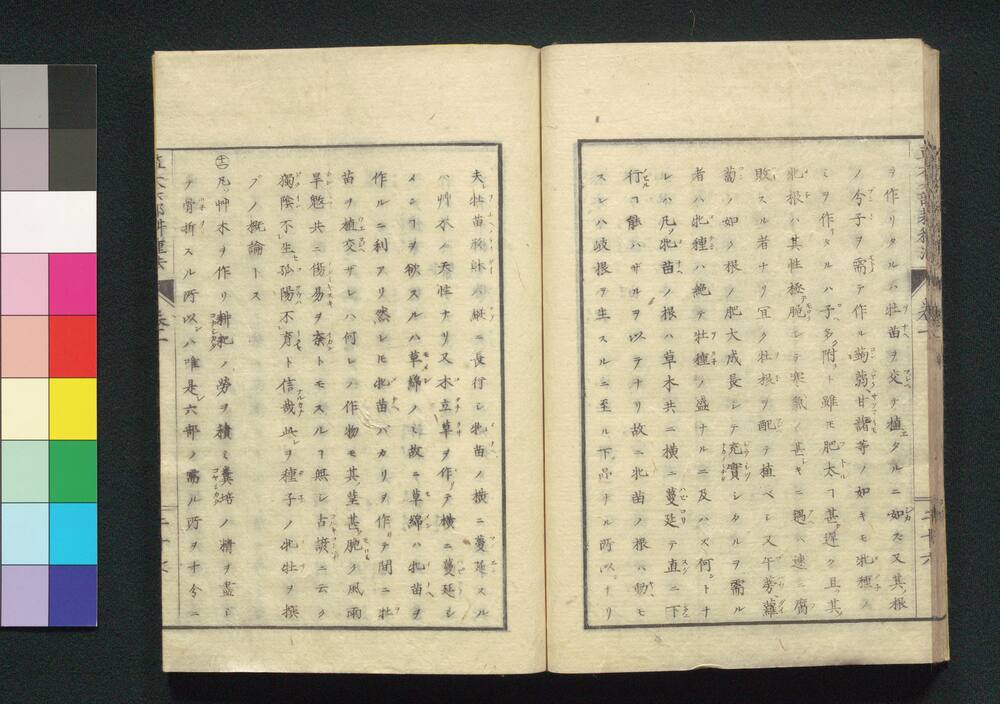 ヲ作リタルハ牡苗ヲ交テ植タルニ如ズ又其根
ノ今子ヲ需テ作ル蒟蒻甘諸等ノ如キモ牝種ノ
ミヲ作タルハ子多ク附ト雖モ肥太ヿ甚遅ク且其
牝根ハ其性極脆シテ寒氣ノ甚キニ遇ハ速ニ腐
敗スル者ナリ宜ク牡根ヲ配テ植ベシ又午蒡蘿
蔔ノ如ノ根ノ肥大成長シテ充實シタルヲ需ル
者ハ牝種ハ絶テ牡種ノ盛ナルニ及ハズ何トナ
レハ凡ソ牝苗ノ根ハ草木共ニ横ニ蔓延テ直ニ下
行ヿ能ハザルヲ以テナリ故ニ牝苗ノ根ハ動モ
スレハ岐根ヲ生スルニ至ル下品ナル所以ナリ
夫レ牡苗ノ ハ縦ニ長行シ牝苗ノ横ニ蔓延スル
ハ艸木ノ天性ナリ又木立草ヲ作リテ横ニ蔓延シ
ヿヲ欲スルハ草綿ノミ故ニ草綿ハ牝苗ヲ
作ルニ利アリ然レモ牝苗バカリヲ作リテ間ニ牡
苗ヲ植交ザレハ何レハ作物モ其莖甚脆ク風雨
旱魃共ニ傷易ヲ奈トモスルヿ無シ古諺ニ云ク
獨陰不レ生孤陽不レ育ト信哉此レヲ種子ノ牝牡ヲ撰
ブノ概論トス
凡ソ艸木ヲ作リ耕耘ノ勞ヲ積ミ糞培ノ精ヲ盡シ
テ骨折スル所以ハ唯是レ六部ノ需ル所ヲ十分ニ